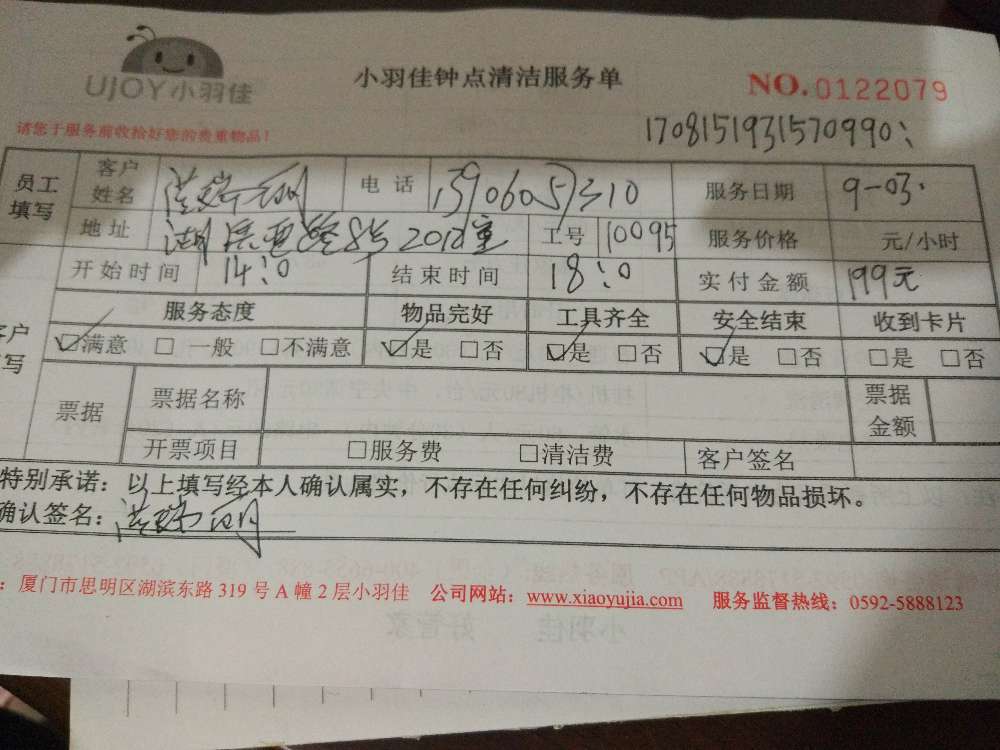 UJOY小羽佳
小羽佳钟点清洁服务单
NO.0122079
请您于服务前收拾好您的贵重物品！
1708151931570990:
员工填写 客户姓名 洪瑞 电话 13906057310 服务日期 9-03.
地址 湖滨西路8号201室 工号 10095 服务价格 元/小时
开始时间 14:0 结束时间 18:0 实付金额 199元
服务态度 物品完好 工具齐全 安全结束 收到卡片
☑满意 □一般 □不满意 ☑是 □否 ☑是 □否 ☑是 □否 □是 □否
票据 票据名称 票据金额
开票项目 □服务费 □清洁费 客户签名
特别承诺：以上填写经本人确认属实，不存在任何纠纷，不存在任何物品损坏。
确认签名：洪瑞
：厦门市思明区湖滨东路319号A幢2层小羽佳 公司网站：www.xiaoyujia.com 服务监督热线：0592-5888123